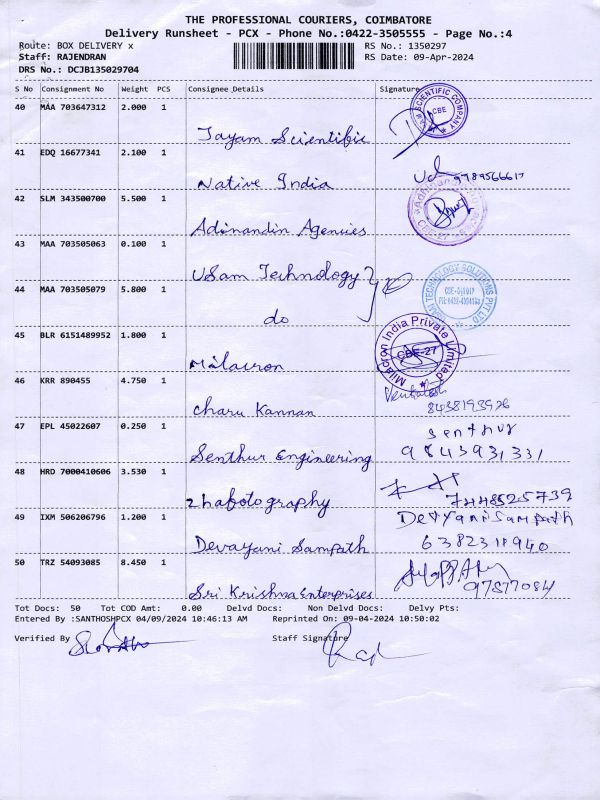 THE PROFESSIONAL COURIERS, COIMBATORE
Delivery Runsheet - PCX - Phone No.:0422-3505555 - Page No.:4
Route: BOX DELIVERY x RS No.: 1350297
Staff: RAJENDRAN RS Date: 09-Apr-2024
DRS No.: DCJB135029704
S No Consignment No Weight PCS Consignee Details Signature
40 MAA 703647312 2.000 1
SCIENTIFIC COMPANY
CBE
Jayam Scientific
41 EDQ 16677341 2.100 1
Native India 9789566617
42 SLM 343500700 5.500 1
Adinandin Agencies
43 MAA 703505063 0.100 1
USam Technology
44 MAA 703505079 5.800 1
TECHNOLOGY SOLUTIONS PVT LTD
do
45 BLR 6151489952 1.800 1
Milacron India Private Limited
CBE-27
Milacron
46 KRR 890455 4.750 1
Venkatesh
Charu Kannan 8438193926
47 EPL 45022607 0.250 1
Senthur
Senthur Engineering 9843931331
48 HRD 7000410606 3.530 1
Zhabotography 7448525739
49 IXM 506206796 1.200 1
Devyani Sampath
Devayani Sampath 6382311940
50 TRZ 54093085 8.450 1
Sri Krishna Enterprises
Tot Docs: 50 Tot COD Amt: 0.00 Delvd Docs: Non Delvd Docs: Delvy Pts:
Entered By :SANTHOSHPCX 04/09/2024 10:46:13 AM Reprinted On: 09-04-2024 10:50:02
Verified By Staff Signature